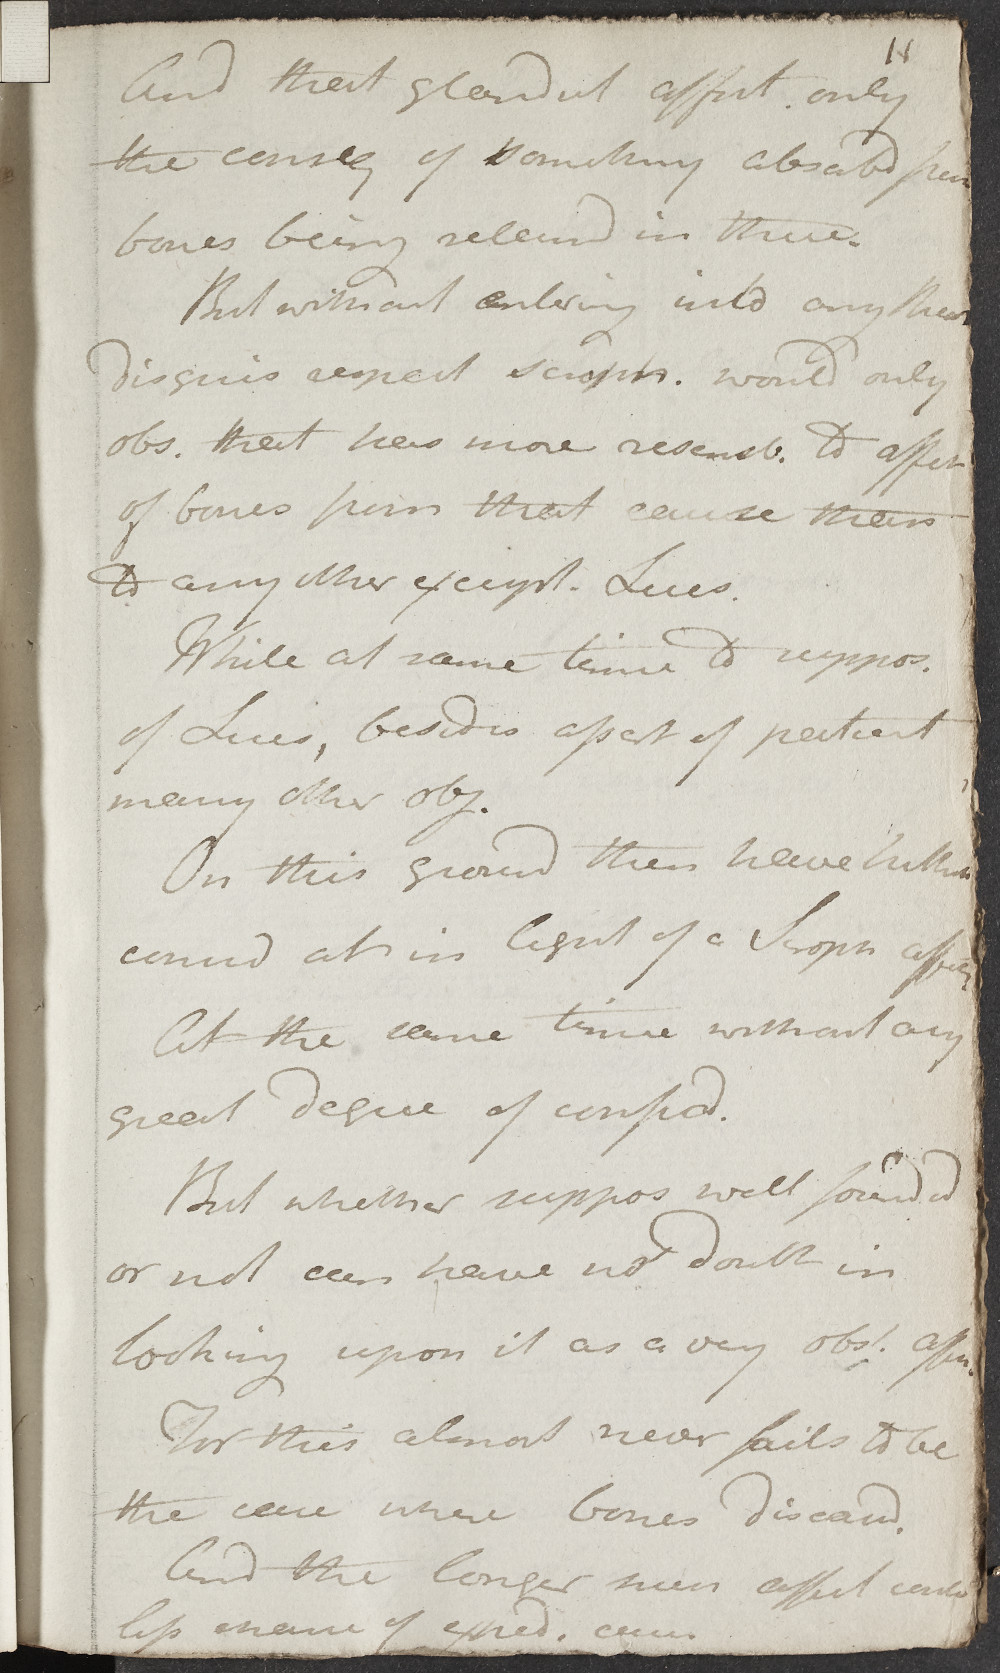 11
And that glandul affect. only
the conseq of something absorbd from
bones being releivd in these.
But without entering into any
disquis respect scroph. would only
obs. that has more resemb. to affect
of bones from that cause than
to any other except. Lues.
While at same time to suppos.
of Lues, besides assert of patient
many other obj.
On this ground then have hitherto
consid at in light of a Scroph affect
At the same time without any
great degree of confid.
But whether suppos well founded
or not can have no doubt in
looking upon it as a very obst. affec.
For this almost never fails to be
the case where bones diseasd.
And the longer such affect contin
less chance of exped. cure